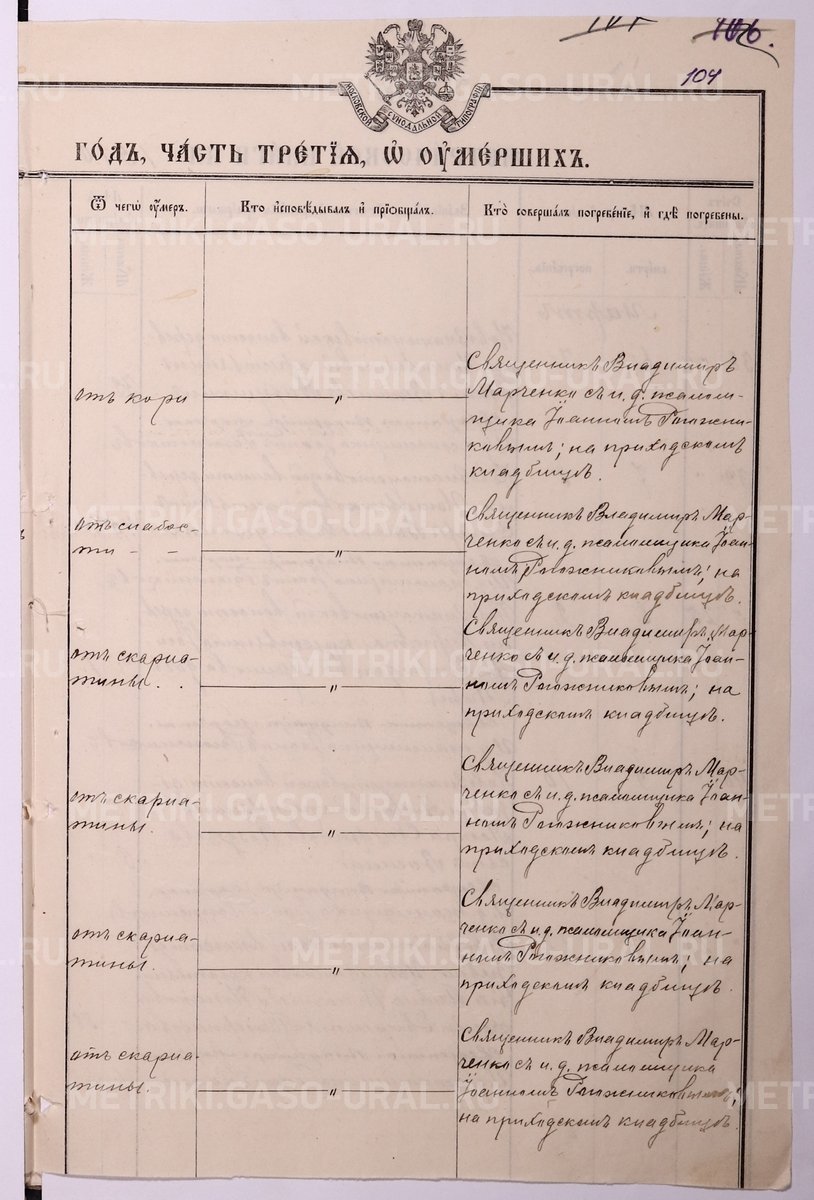 106.
104
МОСКОВСКОЙ СѴНОДАЛЬНОЙ ТИПОГРАФІИ
ГО́ДЪ, ЧА́СТЬ ТРЕ́ТІѦ, Ѡ҆ ОУ҆МЕ́РШИХЪ.
Ѿ чегѡ̀ оу҆́меръ.
Кто̀ и҆сповѣ́дывалъ и҆ прїѡбща́лъ.
Кто̀ соверша́лъ погребе́нїе, и҆ гдѣ̀ погребены̀.
отъ кори
"
Священникъ Владимиръ
Марченко съ и. д. псалом-
щика Іоанномъ Рогожни-
ковымъ; на приходскомъ
кладбищѣ.
отъ слабос-
ти - -
"
Священникъ Владимиръ Мар-
ченко съ и. д. псаломщика Іоан-
номъ Рогожниковымъ; на
приходскомъ кладбищѣ.
отъ скарла-
тины. .
"
Священникъ Владимиръ Мар-
ченко съ и. д. псаломщика Іоан-
номъ Рогожниковымъ; на
приходскомъ кладбищѣ.
отъ скарла-
тины.
"
Священникъ Владимиръ Мар-
ченко съ и. д. псаломщика Іоан-
номъ Рогожниковымъ; на
приходскомъ кладбищѣ.
отъ скарла-
тины.
"
Священникъ Владимиръ Мар-
ченко съ и. д. псаломщика Іоан-
номъ Рогожниковымъ; на
приходскомъ кладбищѣ.
отъ скарла-
тины.
"
Священникъ Владимиръ Мар-
ченко съ и. д. псаломщика
Іоанномъ Рогожниковымъ;
на приходскомъ кладбищѣ.
METRIKI.GASO-URAL.RU